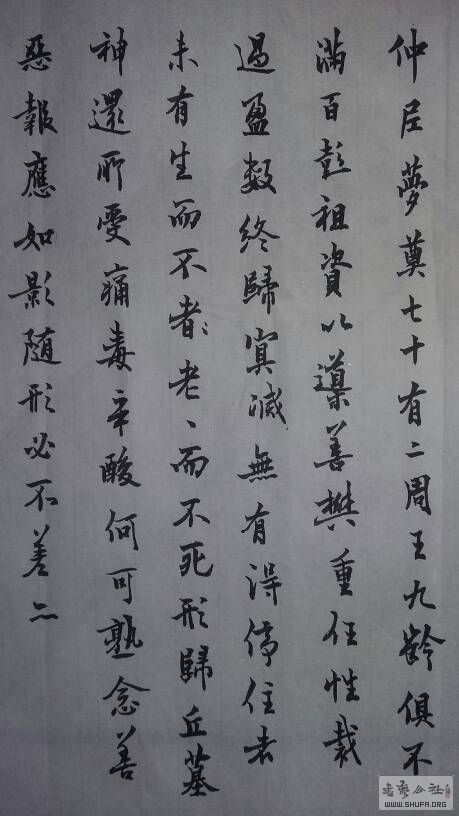 仲尼夢奠七十有二周王九齡俱不
滿百彭祖資以導善樊重任性裁
過盈數終歸寞滅無有得停住者
未有生而不者老、而不死形歸丘墓
神還所受痛毒辛酸何可熟念善
惡報應如影随形必不善二
WWW.SHUFA.ORG